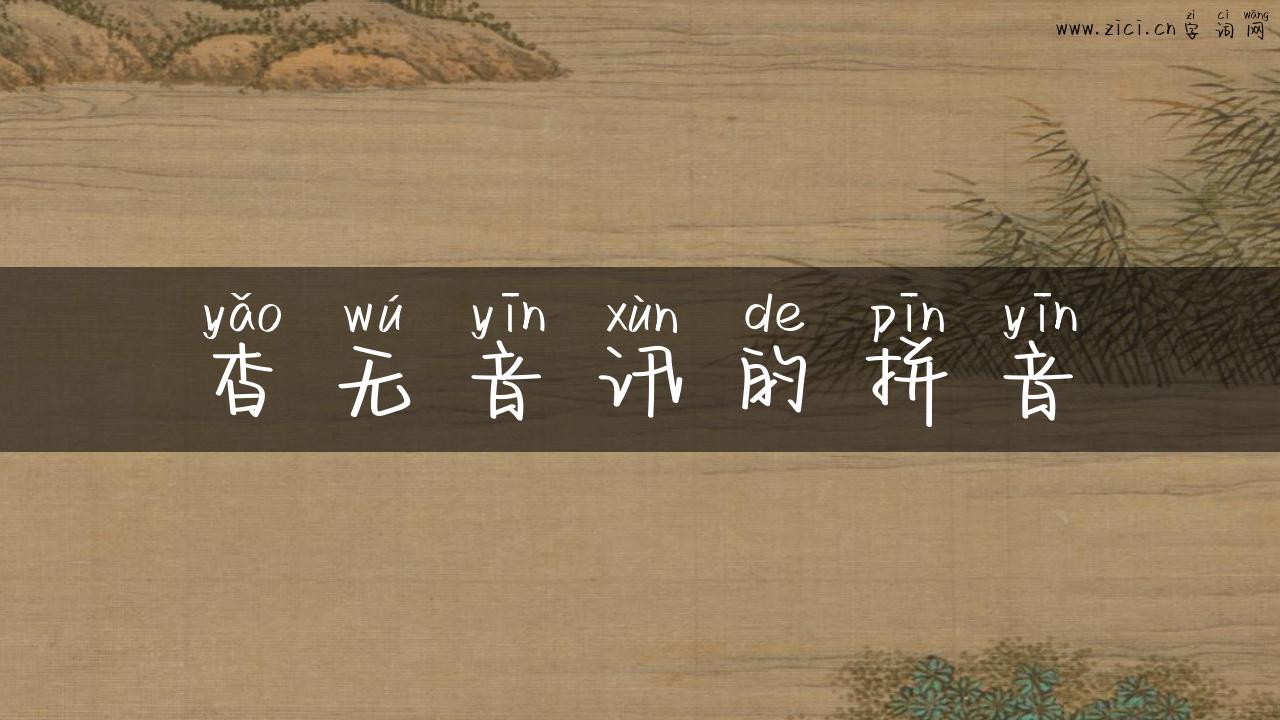 zì cí wǎng
www.zici.cn 字词网
yǎo wú yīn xùn de pīn yīn
杳无音讯的拼音